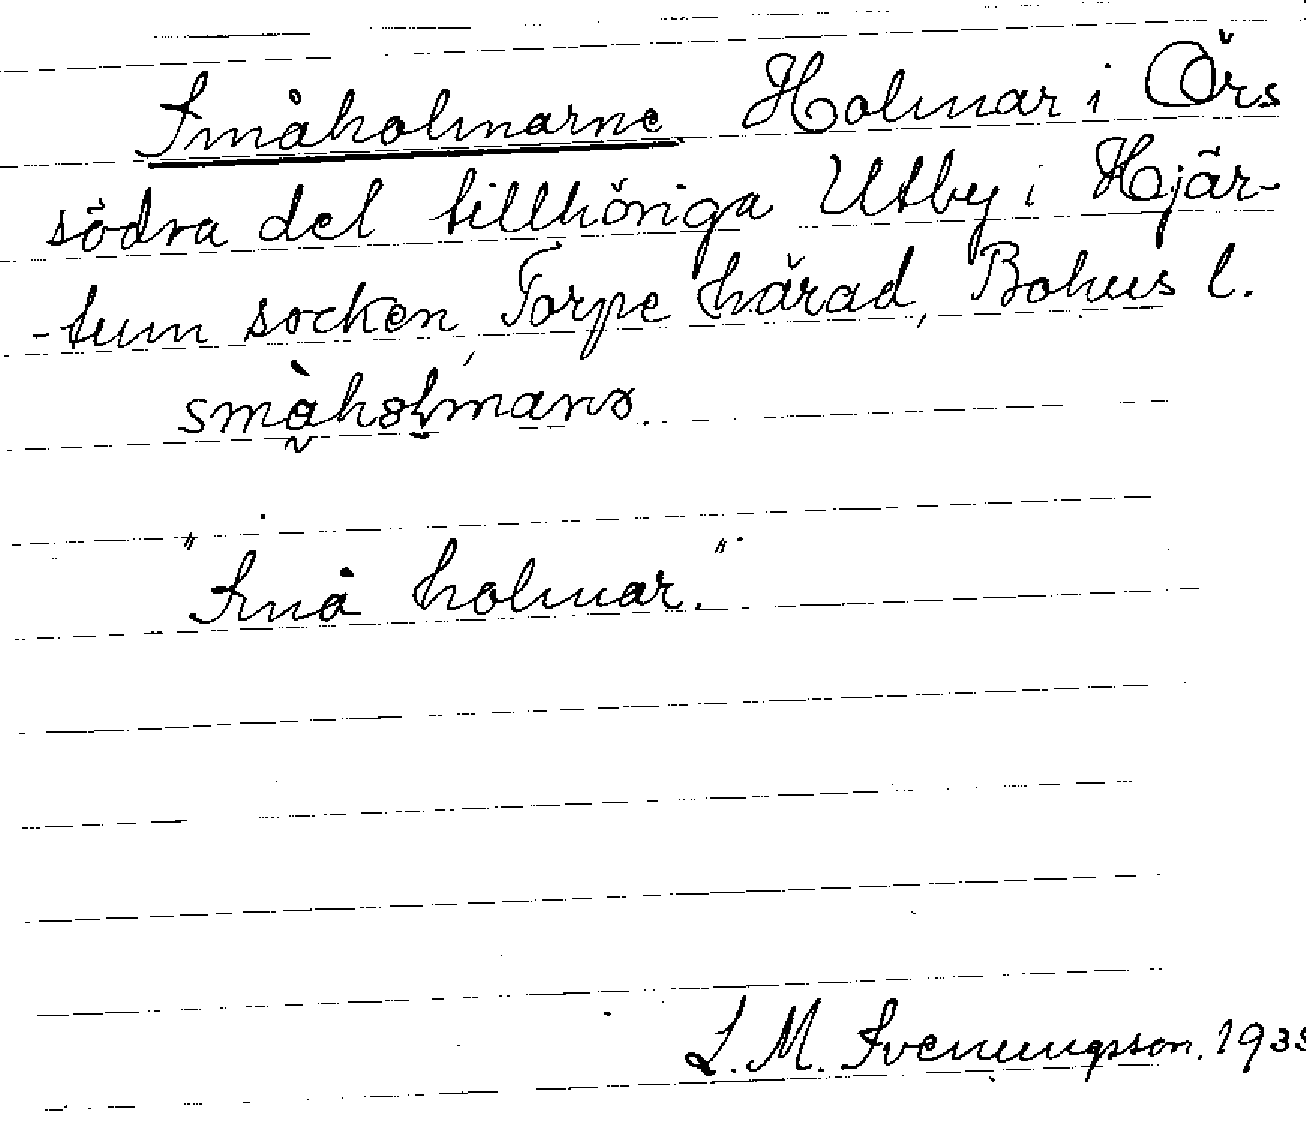 Småholmarne Holmar i Örs
södra del tillhöriga Utby i Hjär-
-tum socken, Torpe härad, Bohus l.
"Små holmar."
L. M. Svenungsson. 193